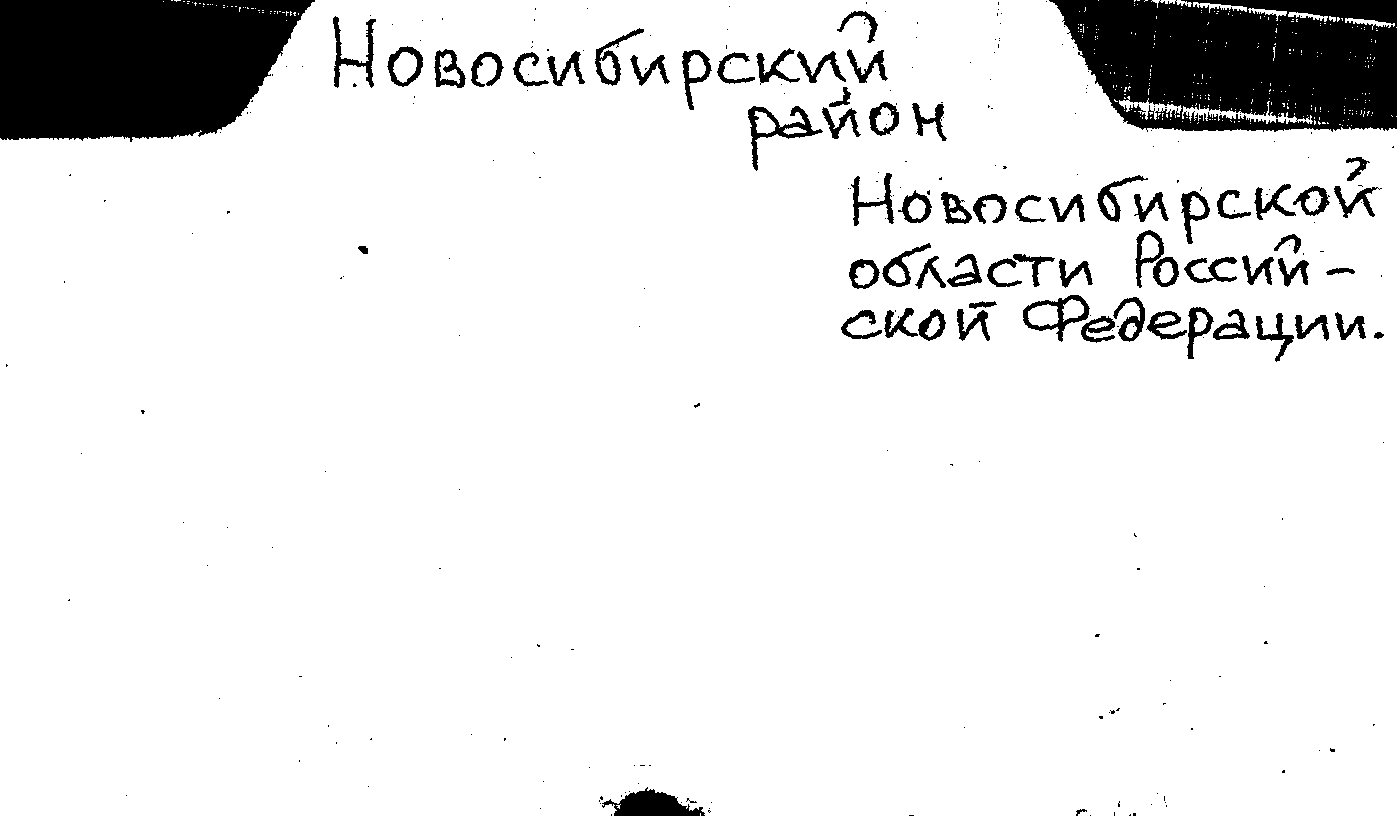 Новосибирский
район
Новосибирской
области Россий-
ской Федерации.